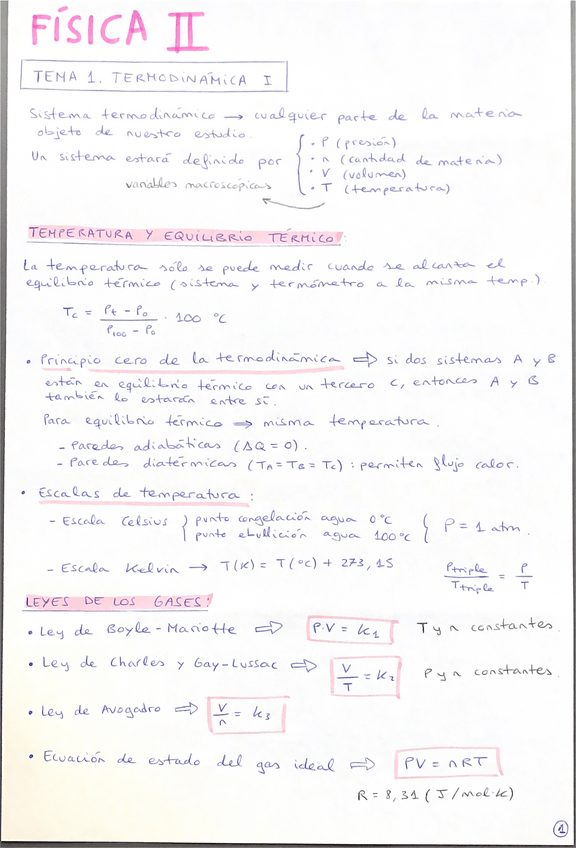 FÍSICA II
TEMA 1. TERMODINÁMICA I
Sistema termodinámico → cualquier parte de la materia
objeto de nuestro estudio.
Un sistema estará definido por
variables macroscópicas
· P (presión)
· n (cantidad de materia)
· V (volumen)
· T (temperatura)
TEMPERATURA Y EQUILIBRIO TÉRMICO:
La temperatura sólo se puede medir cuando se alcanza el
equilibrio térmico (sistema y termómetro a la misma temp.).
Tc = (Pt - P0) / (P100 - P0) · 100 °C
• Principio cero de la termodinámica ⇒ si dos sistemas A y B
están en equilibrio térmico con un tercero C, entonces A y B
también lo estarán entre sí.
Para equilibrio térmico → misma temperatura.
- Paredes adiabáticas (ΔQ = 0).
- Paredes diatérmicas (TA = TB = TC) : permiten flujo calor.
• Escalas de temperatura :
- Escala Celsius } punto congelación agua 0°C
punto ebullición agua 100°C { P = 1 atm.
- Escala Kelvin → T(K) = T(°C) + 273,15
Ptriple / Ttriple = P / T
LEYES DE LOS GASES:
• Ley de Boyle-Mariotte ⇒ P·V = K1 T y n constantes.
• Ley de Charles y Gay-Lussac ⇒ V / T = K2 P y n constantes.
• Ley de Avogadro ⇒ V / n = K3
• Ecuación de estado del gas ideal ⇒ PV = nRT
R = 8,31 (J/mol·K)
1